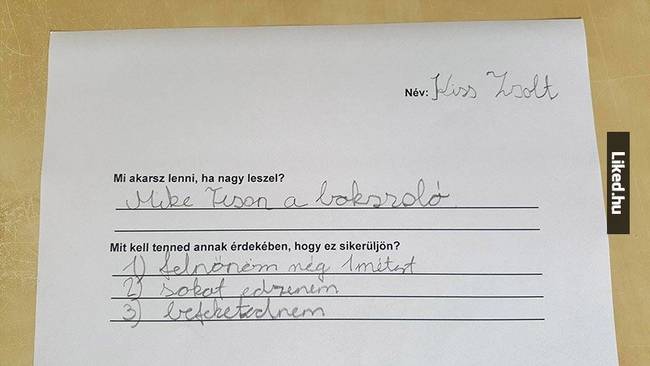 Név: Kiss Zsolt
Mi akarsz lenni, ha nagy leszel?
Mike Teson a bokszoló
Mit kell tenned annak érdekében, hogy ez sikerüljön?
1) felnőnöm még 1métert
2) sokat edzenem
3) befeketednem
Liked.hu